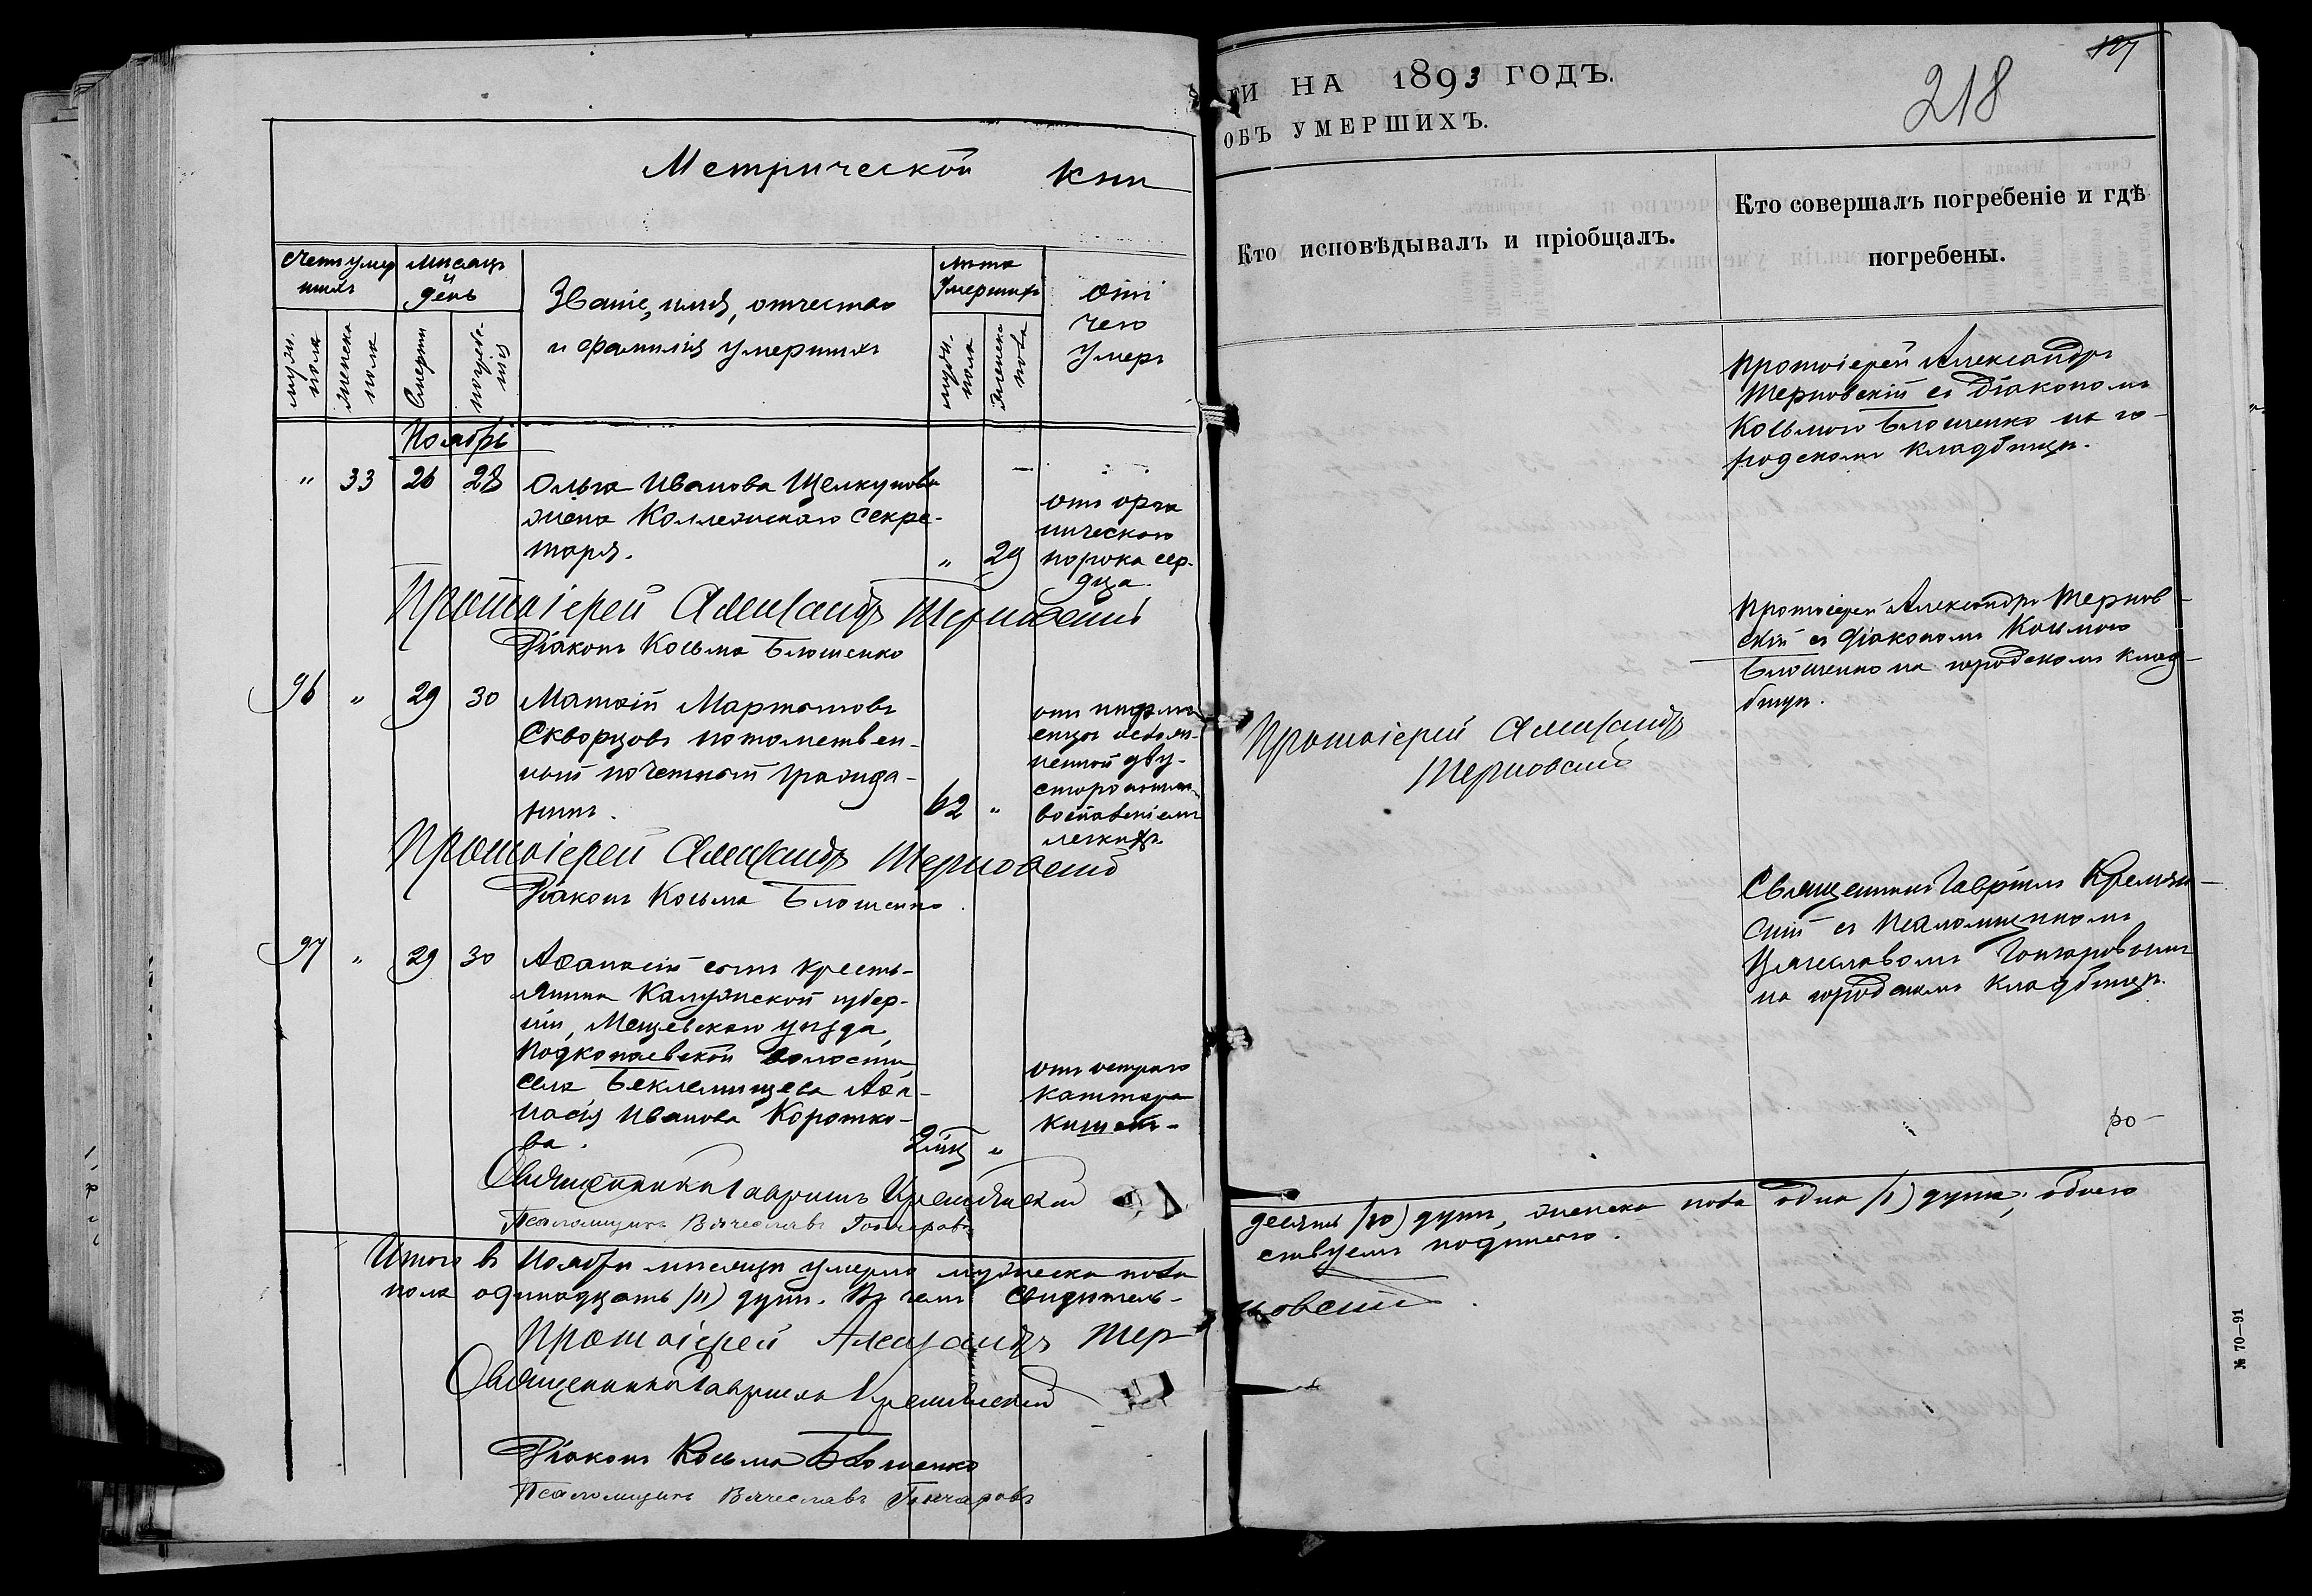 Метрической кни
ги на 1893 годъ.
объ умершихъ.
127
218
Счетъ умер
шихъ
Мѣсяцъ
и
день
Званіе, имя, отчество
и фамилія умершихъ
Лѣта
умершихъ
Отъ
чего
умеръ
мужс.
пола
женска
пола
Смерти
погребе
нія
мужс.
пола
женска
пола
Кто исповѣдывалъ и пріобщалъ.
Кто совершалъ погребеніе и гдѣ
погребены.
Ноябрь
" 33 26 28 Ольга Иванова Щелкунова
жена Коллежскаго Секре-
таря.
" 29
отъ орга
ническаго
порока сер-
дца.
Протоіерей Александръ
Терновскій съ Діакономъ
Косьмою Блошенко на го-
родскомъ кладбищѣ.
Протоіерей Александръ Терновскій
Діаконъ Косьма Блошенко
96 " 29 30 Матвій Мартыновъ
Скворцовъ потомствен-
ный почетный гражда-
нинъ.
62 "
двy-
сторонним
воспаленіемъ
легкихъ
Протоіерей Александръ
Терновскій
Протоіерей Александръ Тернов-
скій съ діакономъ Косьмою
Блошенко на городскомъ клад-
бищѣ.
Протоіерей Александръ Терновскій
Діаконъ Косьма Блошенко.
97 " 29 30 Аѳанасій сынъ кресть-
янина Калужской губер-
ніи, Мещевскаго уѣзда,
Подкопаевской волости
села Беклемищева Аѳа-
насія Иванова Коротко-
ва.
2 мѣс "
отъ остраго
каттара
кишекъ-
Священникъ Гавріилъ Кремян-
скій съ Псаломщикомъ
Вячеславомъ Гончаровымъ
на городскомъ кладбищѣ.
Священникъ Гавріилъ Кремянскій
Псаломщикъ Вячеславъ Гончаровъ
Итого въ Ноябрѣ мѣсяцѣ умерло мужеска пола
десять (10) душъ, женска пола одна (1) душа; обоего
пола одинадцать (11) душъ. Въ чемъ свидѣтель-
ствуемъ подписью.
Протоіерей Александръ Тер
новскій.
Священникъ Гавріилъ Кремянскій
Діаконъ Косьма Блошенко
Псаломщикъ Вячеславъ Гончаровъ
№ 70—91